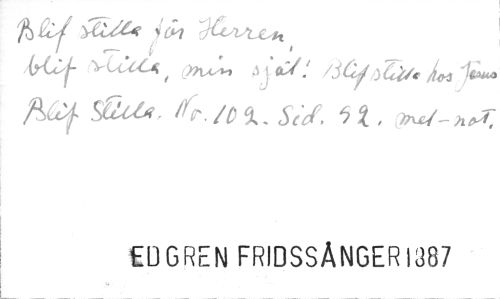 Blif stilla för Herren,
blif stilla, min själ! Blif stilla hos Jesus
Blif Stilla. No. 102. Sid. 92. mel-not.
EDGREN FRIDSSÅNGER 1887